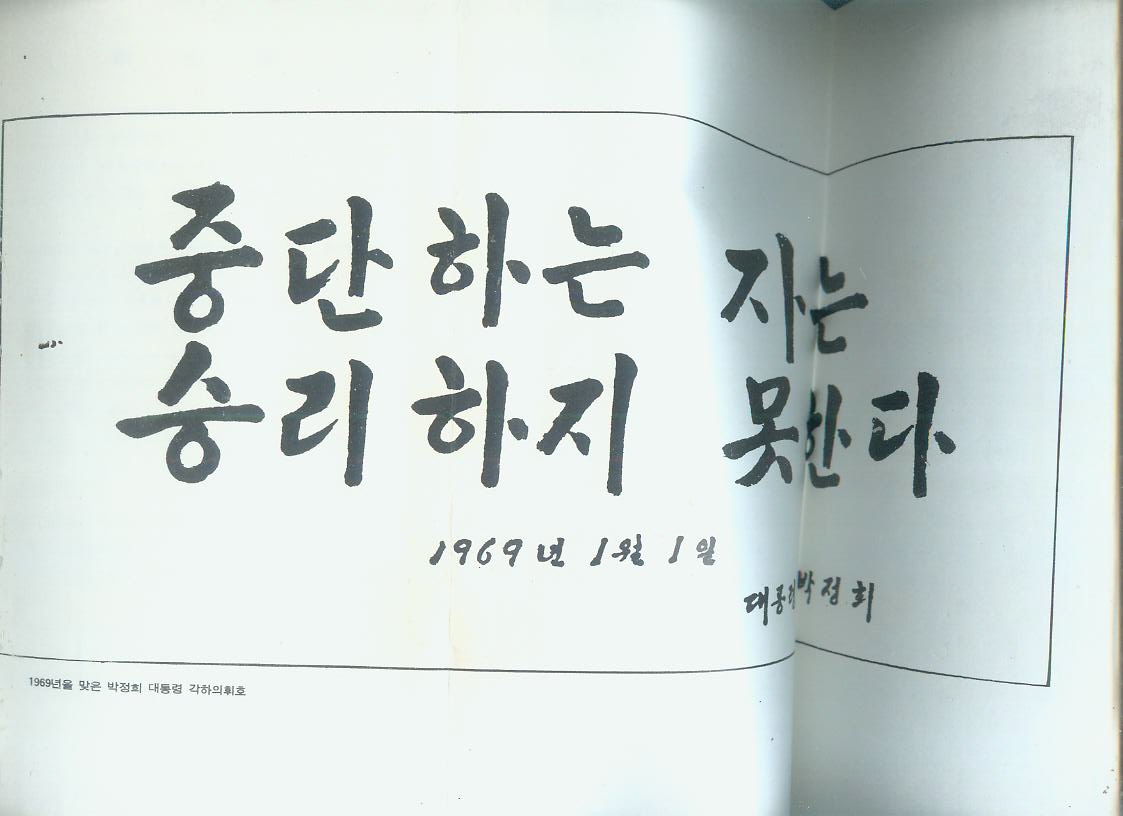 중단하는 자는
승리하지 못한다
1969년 1월 1일
대통령 박정희
1969년을 맞은 박정희 대통령 각하의휘호